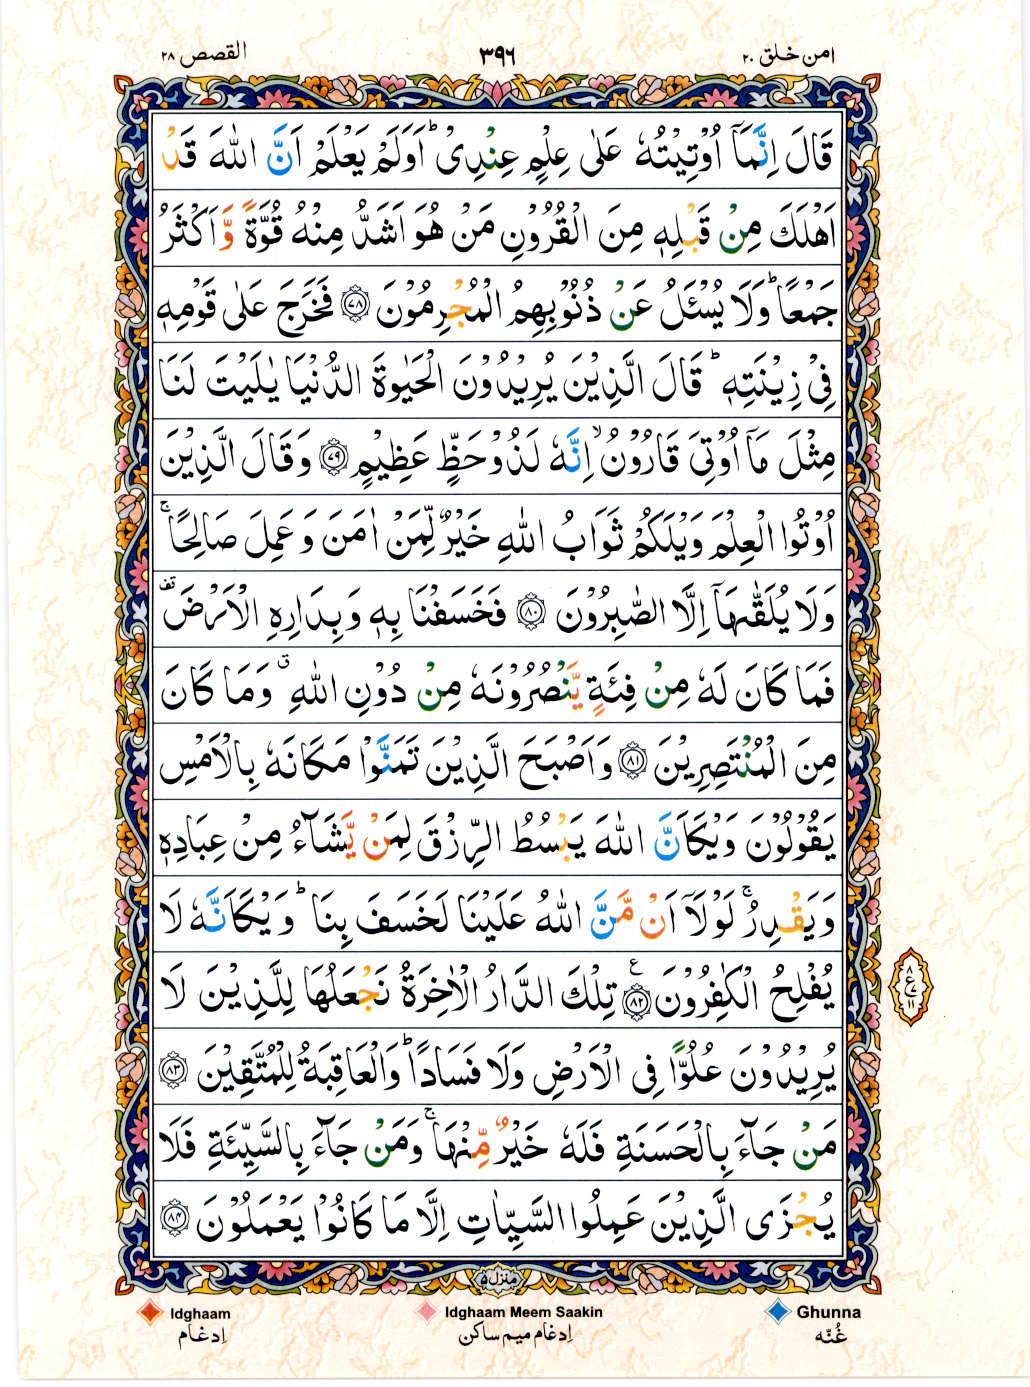 القصص ٢٨
٣٩٦
امن خلق ٢٠
قَالَ اِنَّمَاۤ اُوْتِيْتُهٗ عَلٰى عِلْمٍ عِنْدِىْ ؕ اَوَلَمْ يَعْلَمْ اَنَّ اللّٰهَ قَدْ
اَهْلَكَ مِنْ قَبْلِهٖ مِنَ الْقُرُوْنِ مَنْ هُوَ اَشَدُّ مِنْهُ قُوَّةً وَّ اَكْثَرُ
جَمْعًا ؕ وَلَا يُسْئَلُ عَنْ ذُنُوْبِهِمُ الْمُجْرِمُوْنَ ﴿٧٨﴾ فَخَرَجَ عَلٰى قَوْمِهٖ
فِىْ زِيْنَتِهٖ ؕ قَالَ الَّذِيْنَ يُرِيْدُوْنَ الْحَيٰوةَ الدُّنْيَا يٰلَيْتَ لَنَا
مِثْلَ مَاۤ اُوْتِىَ قَارُوْنُ ۙ اِنَّهٗ لَذُوْ حَظٍّ عَظِيْمٍ ﴿٧٩﴾ وَقَالَ الَّذِيْنَ
اُوْتُوا الْعِلْمَ وَيْلَكُمْ ثَوَابُ اللّٰهِ خَيْرٌ لِّمَنْ اٰمَنَ وَعَمِلَ صَالِحًا ۚ
وَلَا يُلَقّٰىهَاۤ اِلَّا الصّٰبِرُوْنَ ﴿٨٠﴾ فَخَسَفْنَا بِهٖ وَبِدَارِهِ الْاَرْضَ تف
فَمَا كَانَ لَهٗ مِنْ فِئَةٍ يَّنْصُرُوْنَهٗ مِنْ دُوْنِ اللّٰهِ ق وَمَا كَانَ
مِنَ الْمُنْتَصِرِيْنَ ﴿٨١﴾ وَاَصْبَحَ الَّذِيْنَ تَمَنَّوْا مَكَانَهٗ بِالْاَمْسِ
يَقُوْلُوْنَ وَيْكَاَنَّ اللّٰهَ يَبْسُطُ الرِّزْقَ لِمَنْ يَّشَآءُ مِنْ عِبَادِهٖ
وَيَقْدِرُ ۚ لَوْلَاۤ اَنْ مَّنَّ اللّٰهُ عَلَيْنَا لَخَسَفَ بِنَا ؕ وَيْكَاَنَّهٗ لَا
يُفْلِحُ الْكٰفِرُوْنَ ﴿٨٢﴾ ع تِلْكَ الدَّارُ الْاٰخِرَةُ نَجْعَلُهَا لِلَّذِيْنَ لَا
٨
ع ٧
١١
يُرِيْدُوْنَ عُلُوًّا فِى الْاَرْضِ وَلَا فَسَادًا ؕ وَالْعَاقِبَةُ لِلْمُتَّقِيْنَ ﴿٨٣﴾
مَنْ جَآءَ بِالْحَسَنَةِ فَلَهٗ خَيْرٌ مِّنْهَا ۚ وَمَنْ جَآءَ بِالسَّيِّئَةِ فَلَا
يُجْزَى الَّذِيْنَ عَمِلُوا السَّيِّاٰتِ اِلَّا مَا كَانُوْا يَعْمَلُوْنَ ﴿٨٤﴾
منزل ٥
Idghaam
Idghaam Meem Saakin
Ghunna
اِدغام
اِدغام میم ساکن
غُنّه